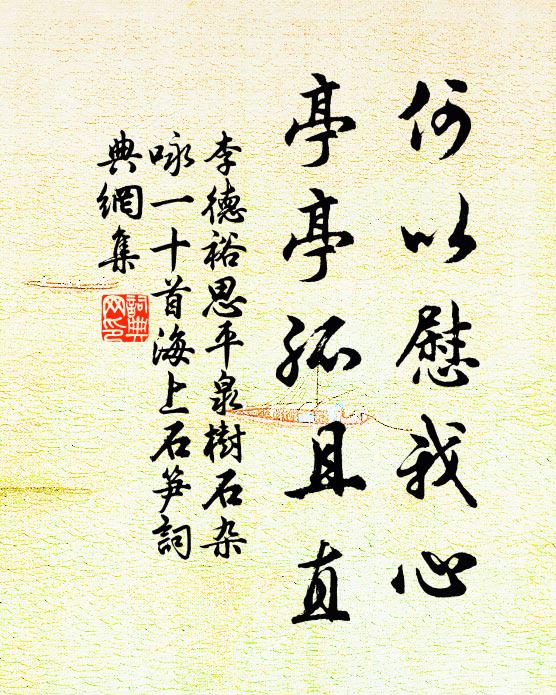 何以慰我心
亭亭孤且直
李德裕思平泉樹石杂
咏一十首海上石笋詞
典網集
詞典
网印